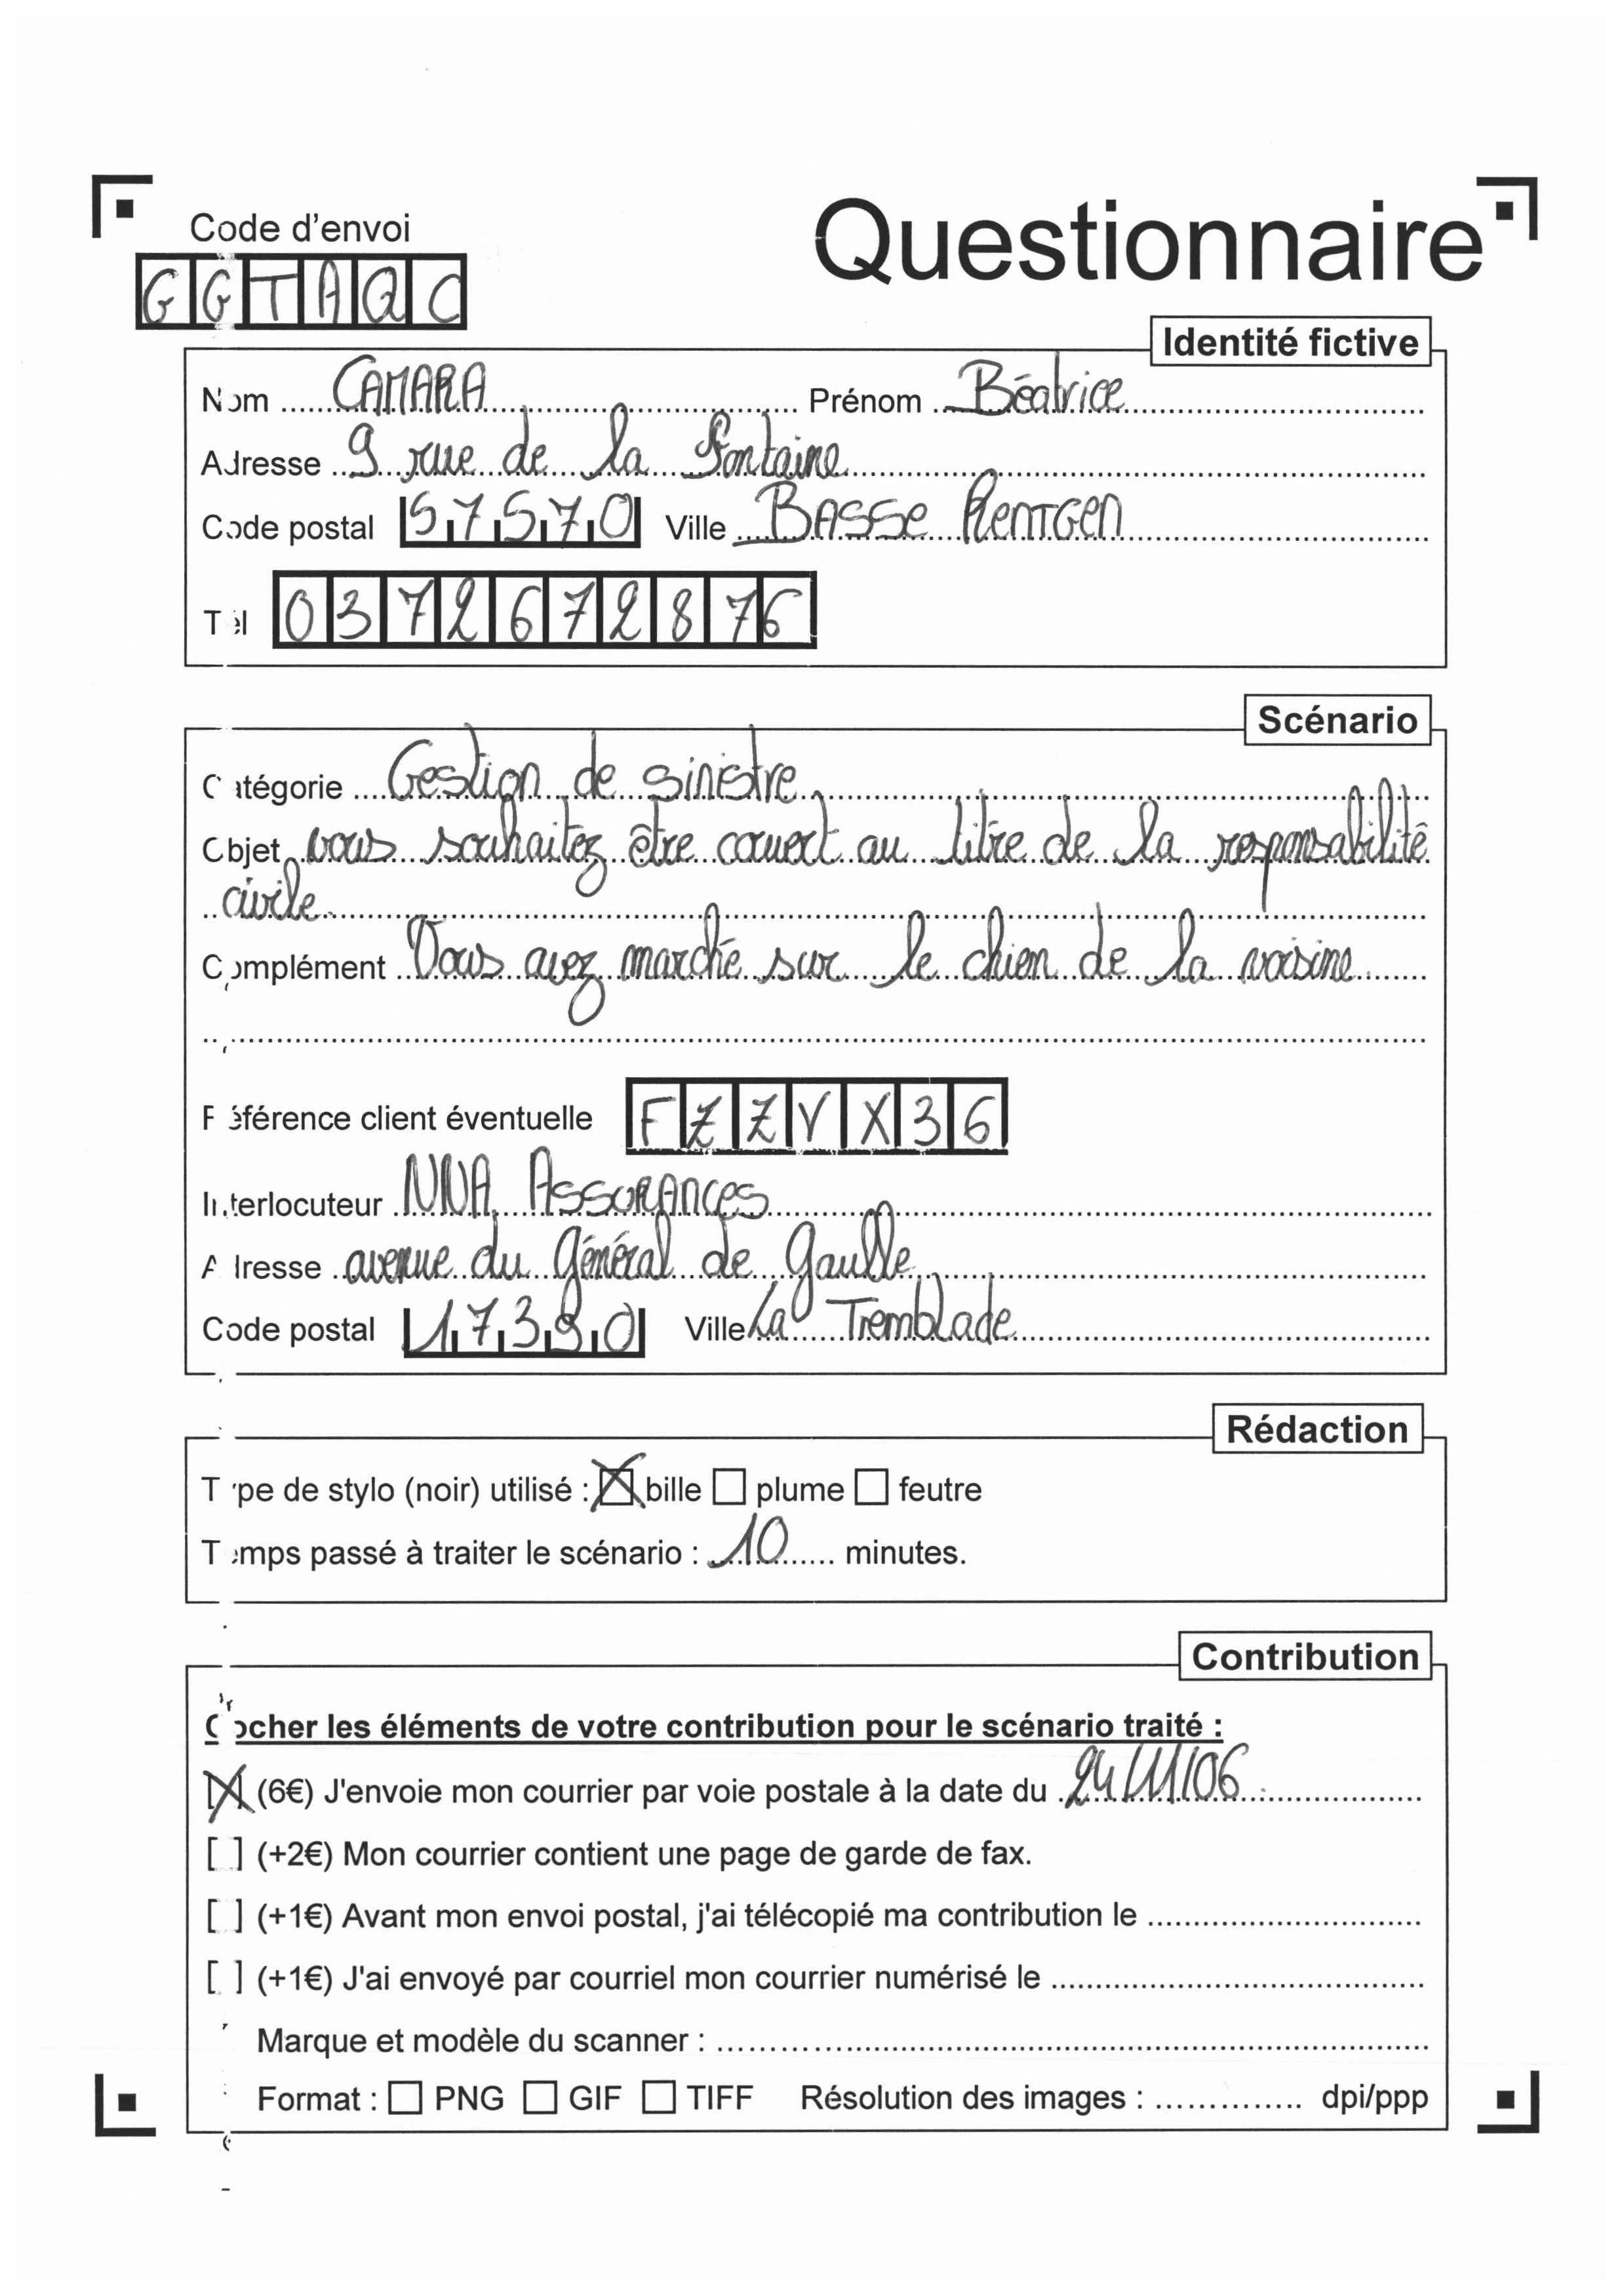 Code d'envoi
Questionnaire
GGTAQC
Identité fictive
Nom CAMARA Prénom Béatrice
Adresse 9 rue de la Fontaine
Code postal 57570 Ville BASSE RenTGen
Tél 0372672876
Scénario
Catégorie Gestion de sinistre
Objet vous souhaitez être couvert au titre de la responsabilité
civile
Complément Vous avez marché sur le chien de la voisine.
Référence client éventuelle FZZVX36
Interlocuteur NNA AssurAnces
Adresse avenue du Général de Gaulle
Code postal 17390 Ville La Tremblade
Rédaction
Type de stylo (noir) utilisé : bille plume feutre
Temps passé à traiter le scénario : 10 minutes.
Contribution
Cocher les éléments de votre contribution pour le scénario traité :
[X] (6€) J'envoie mon courrier par voie postale à la date du 24/11/06
[ ] (+2€) Mon courrier contient une page de garde de fax.
[ ] (+1€) Avant mon envoi postal, j'ai télécopié ma contribution le
[ ] (+1€) J'ai envoyé par courriel mon courrier numérisé le
Marque et modèle du scanner :
Format : PNG GIF TIFF Résolution des images : dpi/ppp